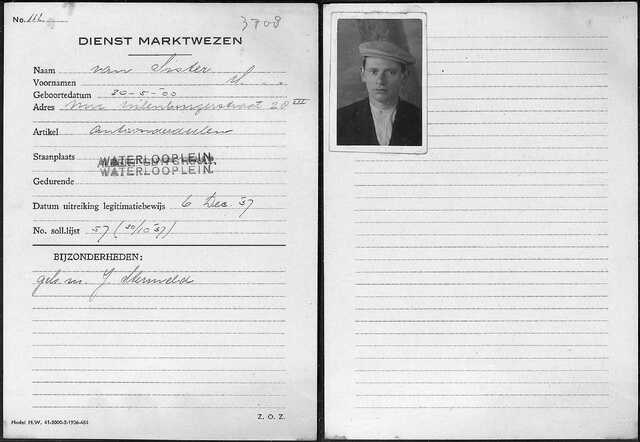 No. 112
3708
DIENST MARKTWEZEN
Naam van Sister
Voornamen
Geboortedatum 30-5-00
Adres 20 III
Artikel
Staanplaats WATERLOOPLEIN.
WATERLOOPLEIN.
Gedurende
Datum uitreiking legitimatiebewijs 6 Dec. 37
No. soll.lijst 57 (30/10 37)
BIJZONDERHEDEN:
geh. m. J.
Z. O. Z.
Model M.W. 41-5000-2-1936-455